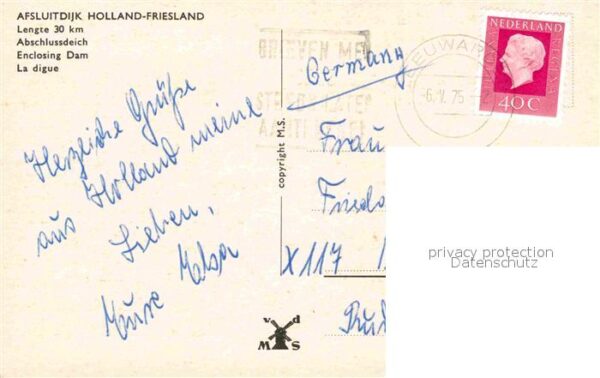 AFSLUITDIJK HOLLAND-FRIESLAND
Lengte 30 km
Abschlussdeich
Enclosing Dam
La digue
Herzliche Grüße
aus Holland meine
Lieben,
Eure Elsa
copyright M.S.
v d
M S
BRIEVEN MET
NEDERLAND
40C
LEEUWARDEN
-6.V.75
Germany
Frau
X117
privacy protection
Datenschutz